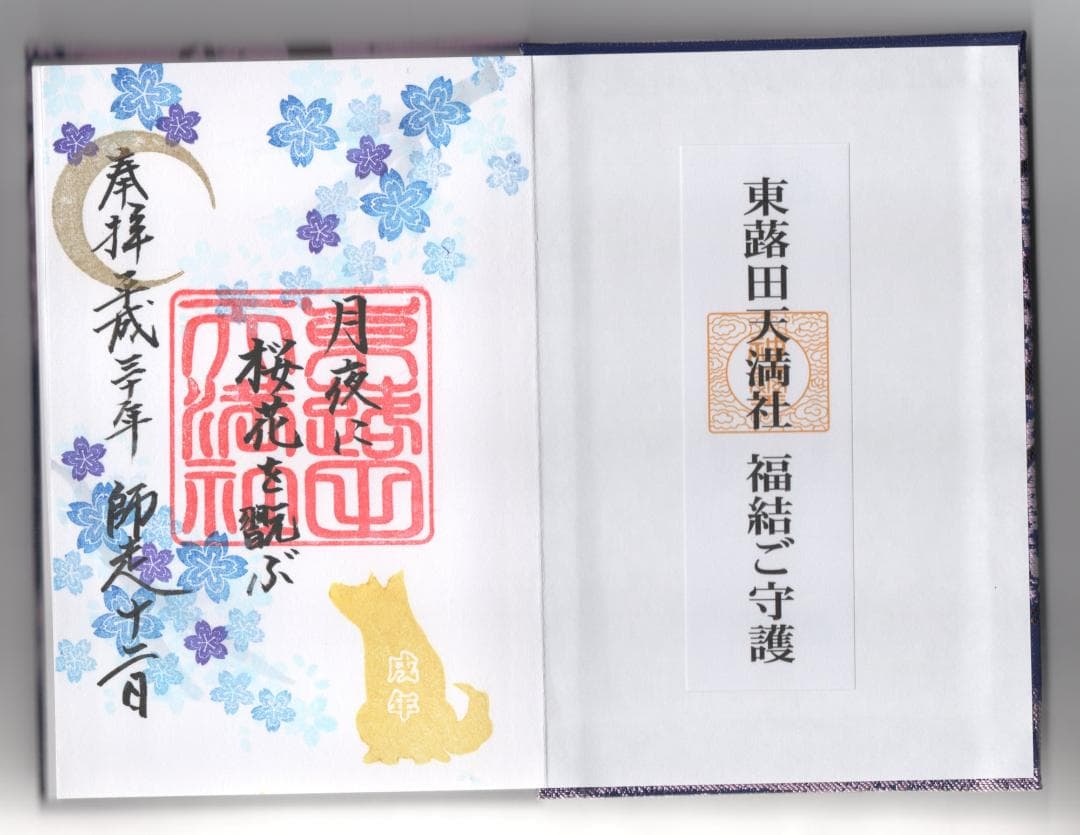 東蕗田天満社 福結ご守護
月夜に
桜花を翫ぶ
東蕗田
天満社
奉拝 平成三十年 師走十二日
戌年